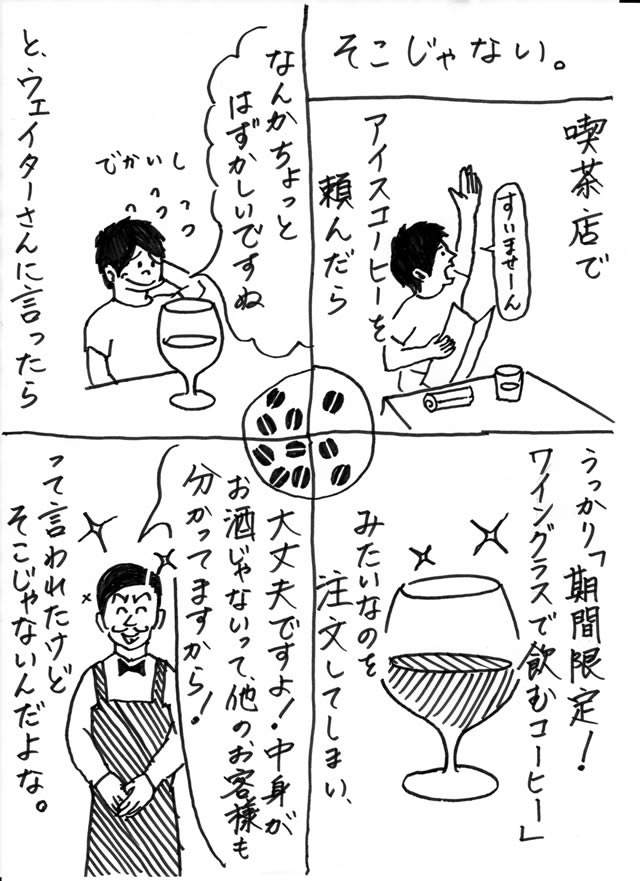 そこじゃない。
喫茶店で
アイスコーヒーを
頼んだら
すいませーん
うっかり「期間限定!
ワイングラスで飲むコーヒー」
みたいなのを
注文してしまい、
なんかちょっと
はずかしいですね
でかいし
と、ウェイターさんに言ったら
大丈夫ですよ!中身が
お酒じゃないって、他のお客様も
分かってますから!
って言われたけど
そこじゃないんだよな。